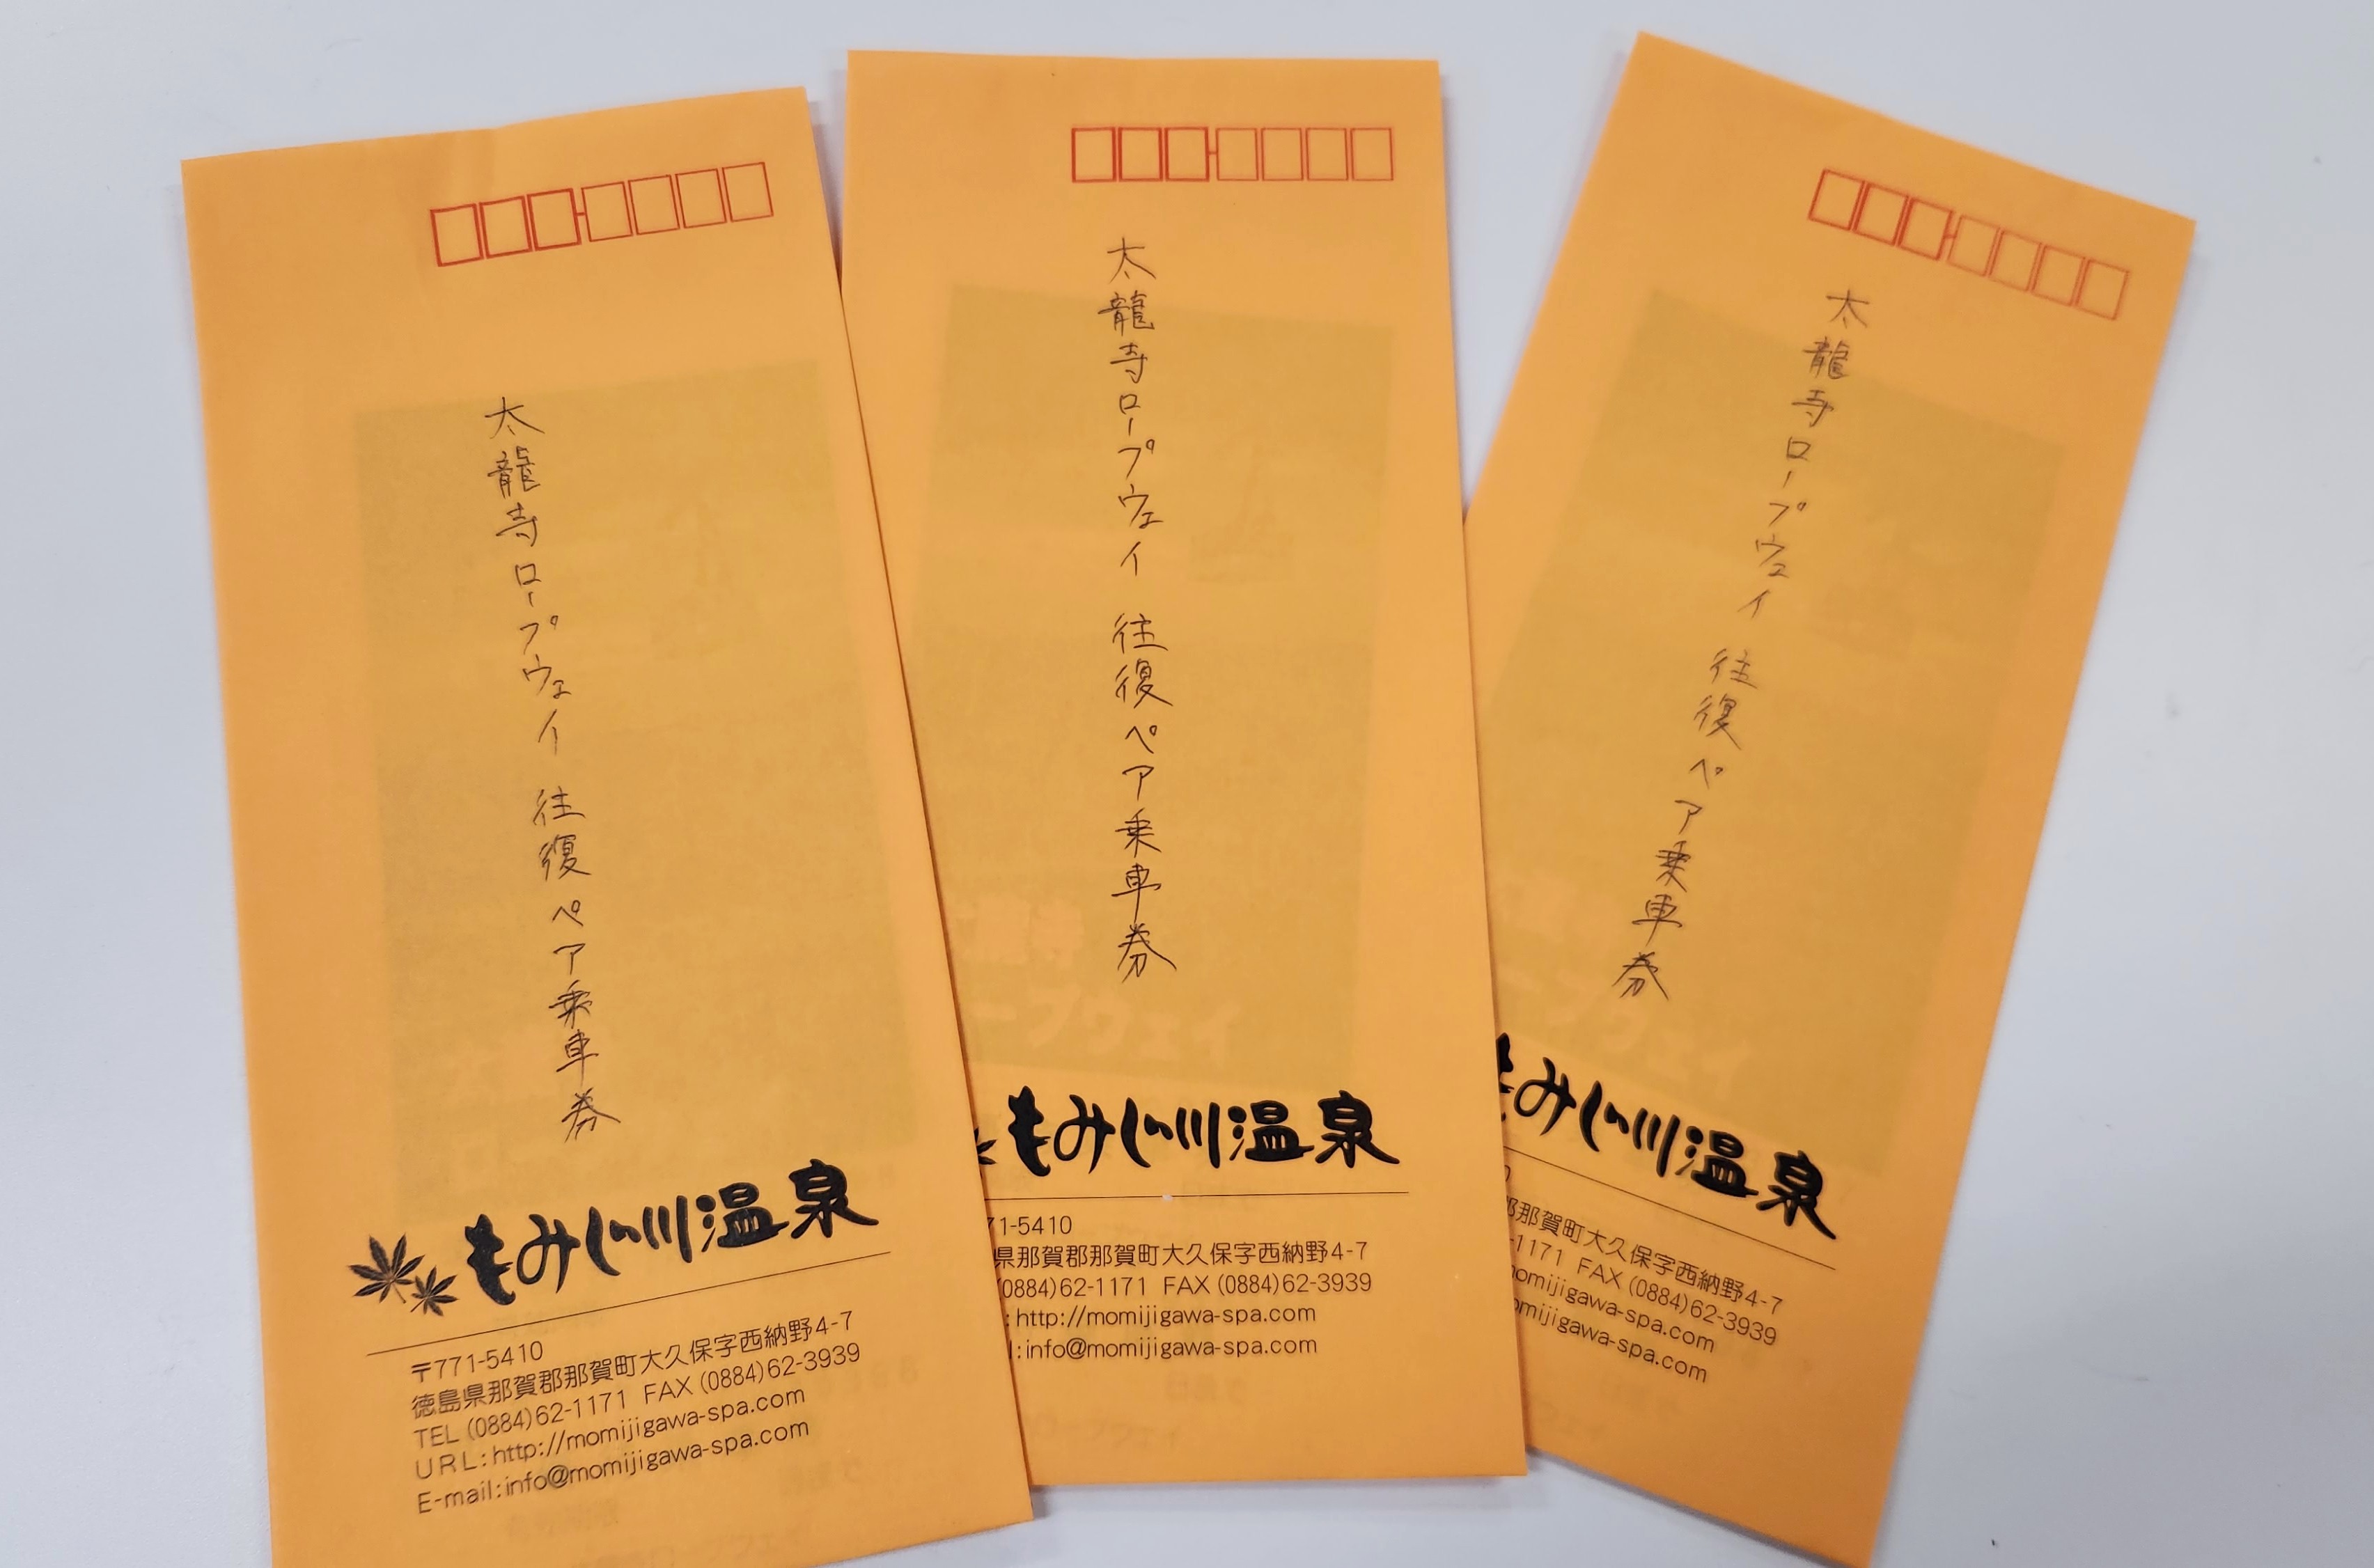 太龍寺ロープウェイ 往復ペア乗車券
もみじ川温泉
〒771-5410
徳島県那賀郡那賀町大久保字西納野4-7
TEL (0884)62-1171 FAX (0884)62-3939
URL:http://momijigawa-spa.com
E-mail:info@momijigawa-spa.com
太龍寺ロープウェイ 往復ペア乗車券
もみじ川温泉
71-5410
県那賀郡那賀町大久保字西納野4-7
(0884)62-1171 FAX (0884)62-3939
:http://momijigawa-spa.com
l:info@momijigawa-spa.com
太龍寺ロープウェイ 往復ペア乗車券
もみじ川温泉
0
郡那賀町大久保字西納野4-7
-1171 FAX (0884)62-3939
momijigawa-spa.com
omijigawa-spa.com